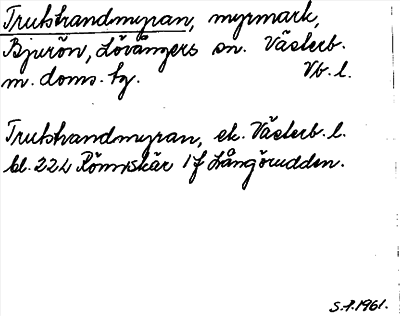 Trutstrandmyran, myrmark,
Bjurön, Lövångers sn. Västerb.
m. doms. bg. Vb. l.
Trutstrandmyran, ek. Västerb. l.
bl. 22L Rönnskär 1f Långörudden.
S.F. 1961.